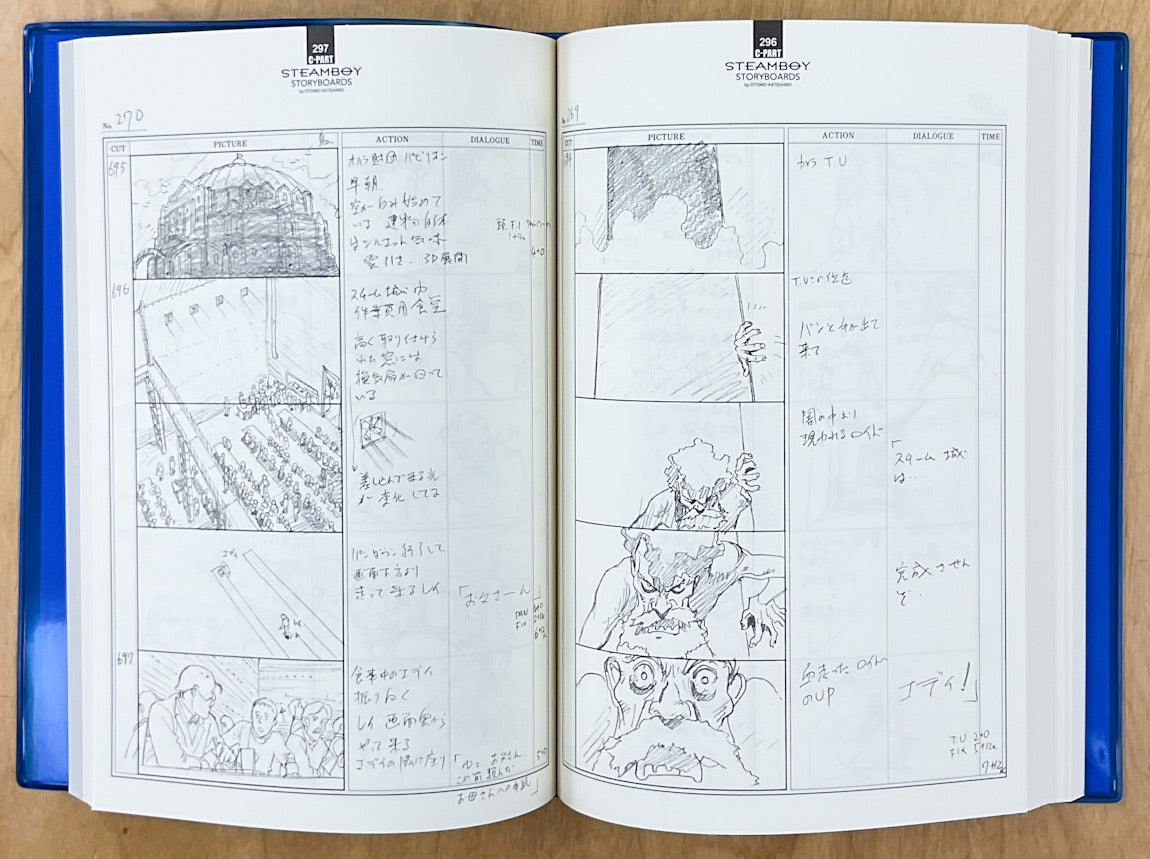 296
C-PART
STEAMBOY
STORYBOARDS
by OTOMO KATSUHIRO
269
PICTURE
ACTION
DIALOGUE
TIME
694
から T.U
T.Uこの位色
バンと手が出て
来て
闇の中より
現われるロイド
「
スチーム城
は…
完成させん
ぞ..
血走ったロイド
のUP
エディ!」
T.U 2+0
FIX 5+12
7+12
297
C-PART
STEAMBOY
STORYBOARDS
by OTOMO KATSUHIRO
No. 270
CUT
PICTURE
ACTION
DIALOGUE
TIME
695
オハラ財団パビリオン
早朝.
空が白み始めて
いる 建物自体
はシルエット気味
雲引き. 3D展開
頭 F.I
1+12
4+0
696
スチーム城内
作業員用食堂
高く取り付けら
れた窓には
換気扇が回って
いる
差し込んで来る光
が変化してる
エディ
レイ
パンダウン終了して
画面下方より
走って来るレイ
「お父さーん」
PAN 4+0
FIX 2+12
6+12
697
食事中のエディ
振りむく
レイ画面奥から
やって来る
エディの隣に座り
「ねェ お父さん
この前頼んだ
お母さんへの手紙」